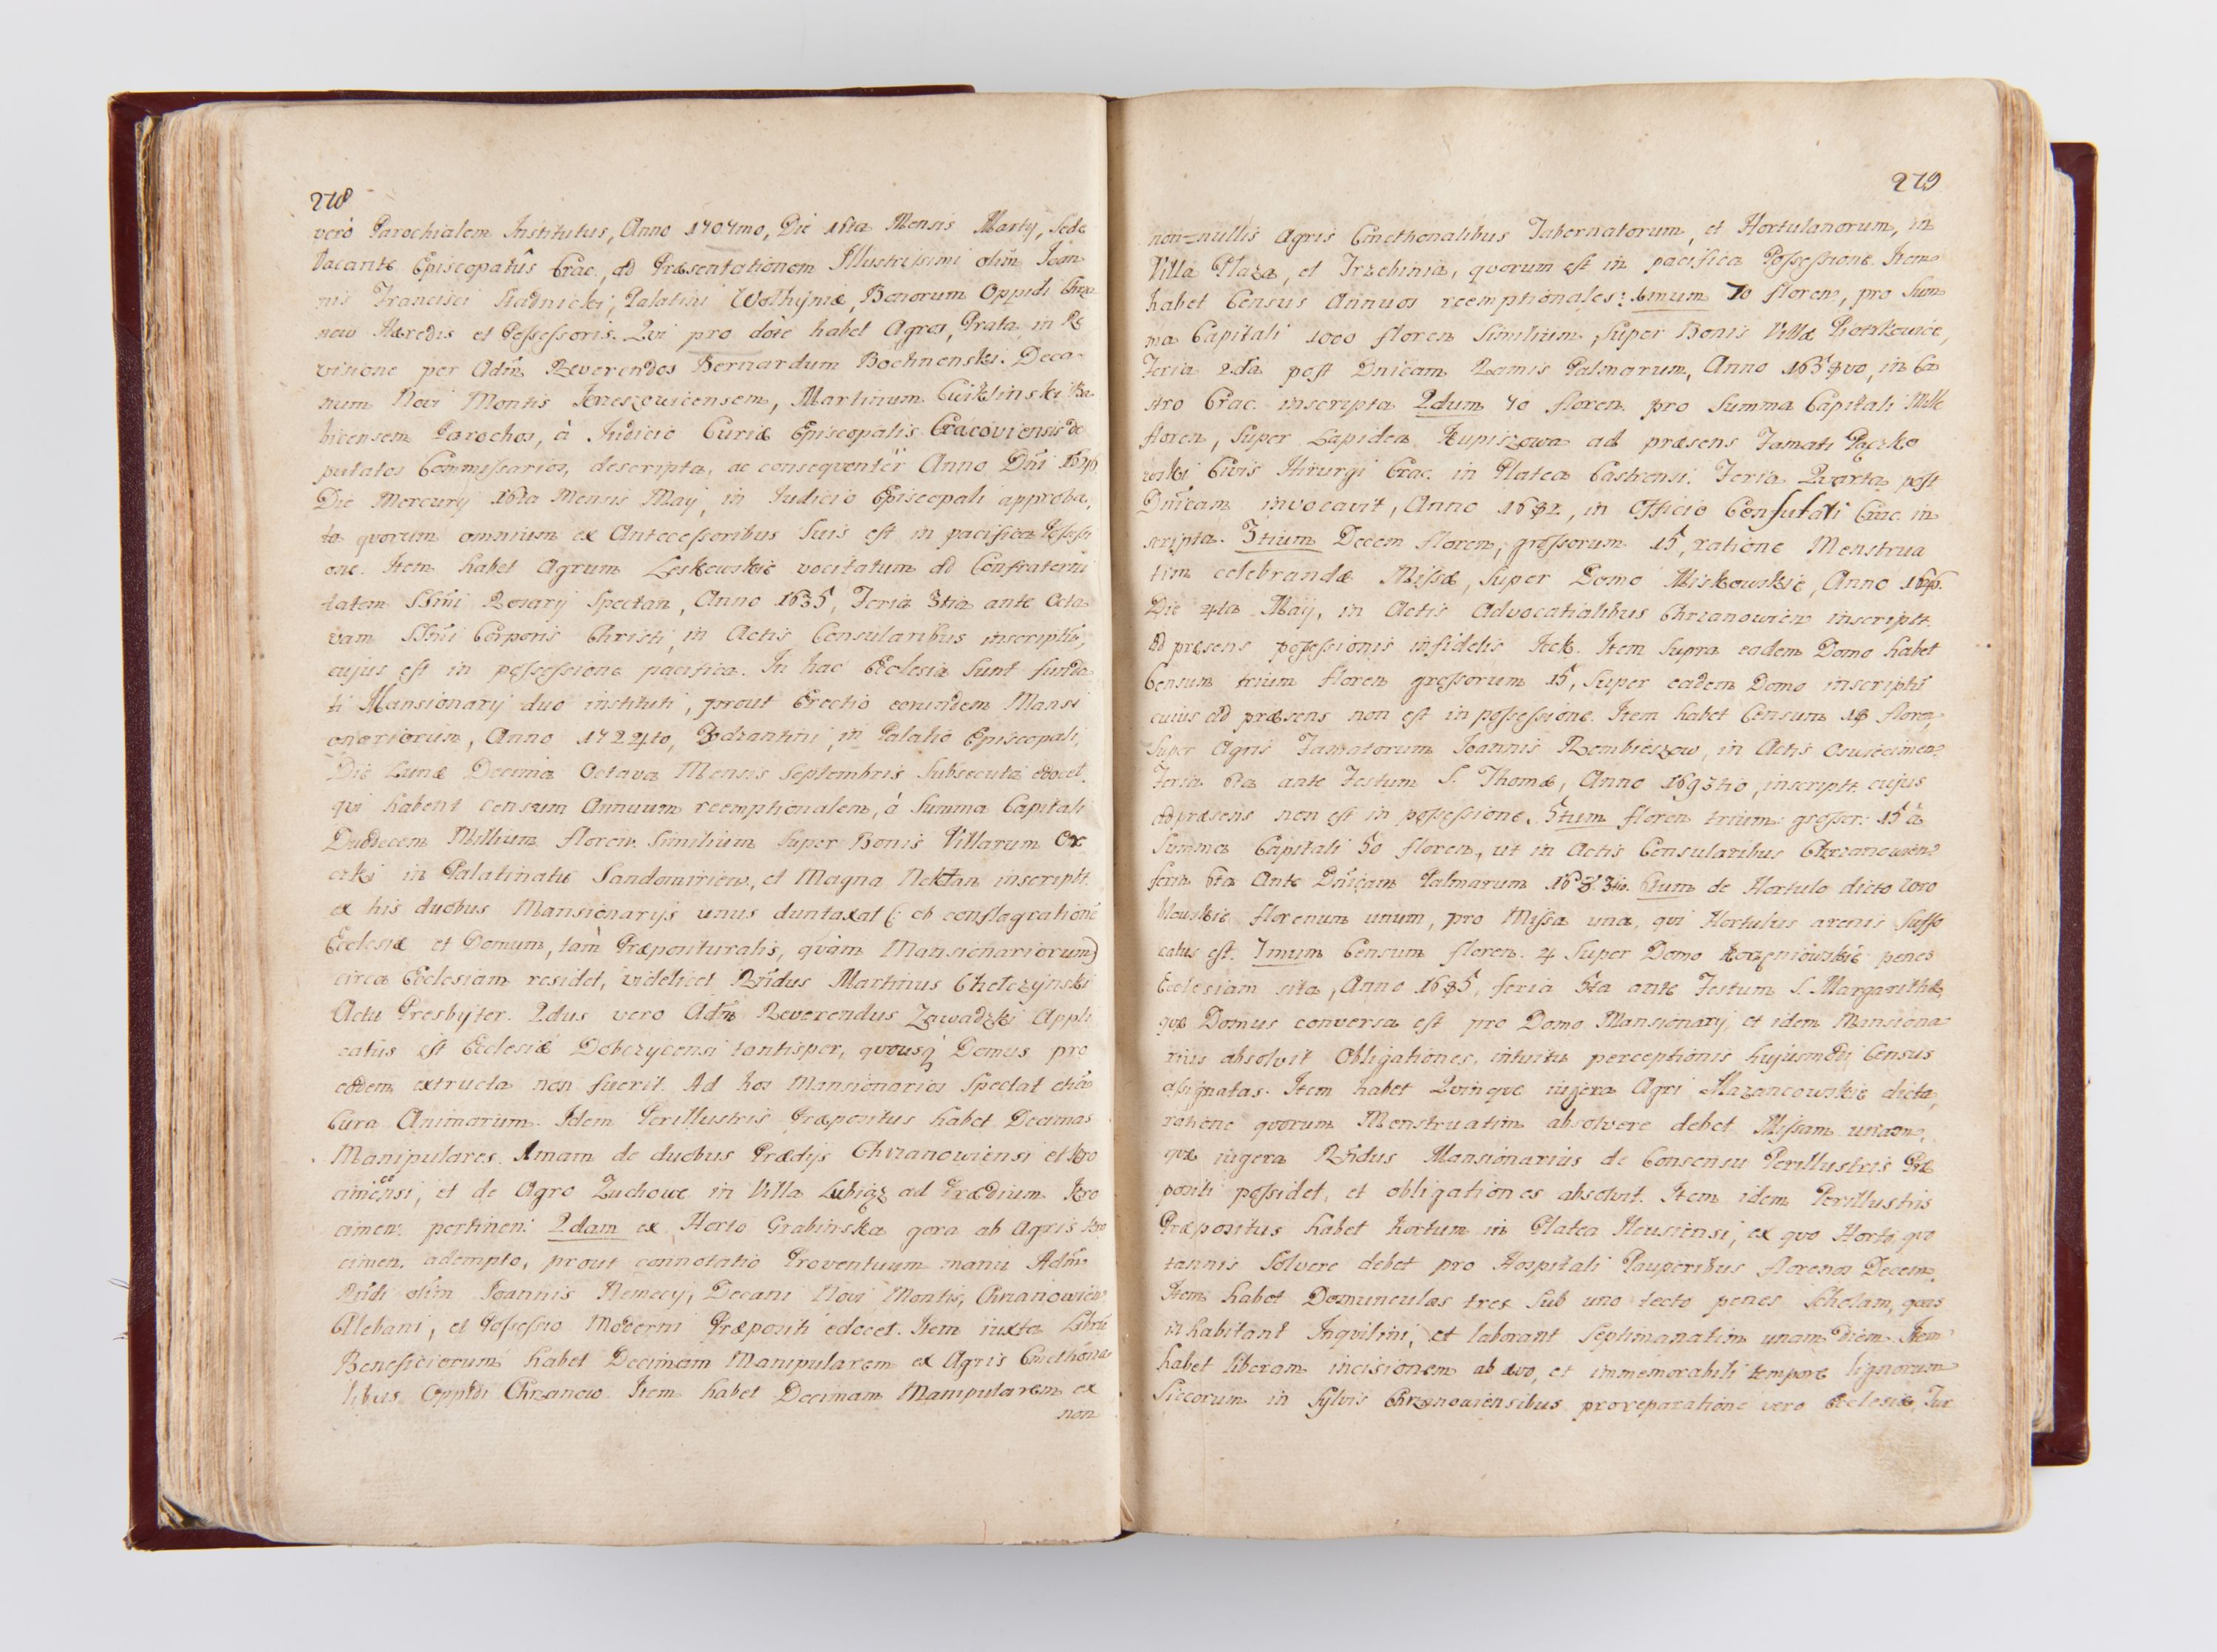 278
verò Parochialem Institutus, Anno 1707mo, Die 16ta Mensis Martij, Sede
Vacante Episcopatûs Crac., ad Præsentationem Illustrissimi olim Joan
nis Francisci Stadnicki, Palatini Wołhyniæ, Bonorum Oppidi Chrza
now Hæredis et Possessoris. Qui pro dote habet Agros, Prata in Re
visione per Adm̄ Reverendos Bernardum Bochnenski Deca-
num Novi Montis Krzeszowicensem, Martinum Cwiklinski Ba
bicensem Parochos, à Judicio Curiæ Episcopalis Cracoviensis de
putatos Commissarios, descripta, ac consequentèr Anno Dñi
Die Mercurij 16ta Mensis Maij, in Judicio Episcopali approba,
ta quorum omnium ex Antecessoribus Suis est in pacifica Possessi
one. Item habet Agrum Leskowskie vocitatum ad Confraterni
tatem SSm̄i Rosarij Spectan, Anno 1635, Feria 3tia ante Octa
vam SSm̄i Corporis Christi, in Actis Consularibus inscriptū,
cujus est in possessione pacifica. In hac Ecclesia Sunt funda
ti Mansionarij duo instituti, prout Erectio eorundem Mansi
onariorum, Anno 1724to, Bodzantini, in Palatio Episcopali,
Die Lunæ Decima Octava Mensis Septembris Subsecuta edocet.
qui habent censum Annuum reemptionalem, à Summa Capitali
Duodecem Millium floren. Similium Super Bonis Villarum
in Palatinatu Sandomirien., et Magna inscriptt.
ex his duobus Mansionarijs unus duntaxat (: ob conflagrationē
Ecclesiæ et Domum, tam̀ Præpositturalis, quàm Mansionariorum)
circa Ecclesiam residet, videlicet Rñdus Martinus Chełczynski
Actu Presbyter. 2dus vero Adm̄ Reverendus Zawadzki Appli
catus est Ecclesiæ Dobczycensi tantisper, quousq̀ Domus pro
eodem extructa non fuerit. Ad hos Mansionarios Spectat etiā
Cura Animarum. Idem Perillustris Præpositus habet Decimas
Manipulares. 1mam de duobus Prædijs Chrzanowiensi et Ko
cimensi, et de Agro Zuchowe in Villa ad Prædium Ko
cimen. pertinen. 2dam ex Horto Grabinska gora ab Agris Ko
cimen. adempto, prout connotatio Proventuum manu Adm̄
Rñdi olim Joannis Nemecy, Decani Novi Montis, Chrzanowien
Plebani, et Possessio Moderni Præpositi edocet. Item iuxta Librū
Beneficiorum habet Decimam Manipularem ex Agris Cmethona
libus Oppidi Chrzanow. Item habet Decimam Manipularem ex
non
279
non=nullis Agris Cmethonalibus Tabernatorum, et Hortulanorum, in
Villa Płaza, et Trzebinia, quorum est in pacifica Possessione. Item
habet Census Annuos reemptionales: 1mum 70 floren, pro Sum
ma Capitali 1000 floren Similium, Super Bonis Villæ Piotrkowice,
Feria 2da post Dnicam Ramis Palmarum, Anno in Ca
stro Crac. inscripta 2dum 70 floren. pro Summa Capitali Mille
floren, Super Lapidea Kupiszowa ad præsens Famati Paczko
wski Civis Hirurgi Crac. in Platea Castrensi. Feria Quarta post
Dnicam invocavit, Anno 1682, in Officio Consulati Crac. in
scripta. 3tium Decem floren, grossorum 15, ratione Menstrua
tim celebrandæ Missæ, Super Domo Miskowskie, Anno
Die 4ta Maij, in Actis Advocatialibus Chrzanowien inscriptt.
ad præsens possessionis infidelis Icek. Item Supra eadem Domo habet
Censum trium floren grossorum 15, Super eadem Domo inscriptū
cuius ad præsens non est in possessione. Item habet Censum 18 floren,
Super Agris Famatorum Joannis Rembieszow, in Actis Oswiecimen.
Feria 6ta ante Festum S. Thomæ, Anno 1693tio, inscriptt. cujus
ad præsens non est in possessione. 5tum floren trium: grosser: 15 à
Summa Capitali 50 floren, ut in Actis Consularibus Chrzanowien.
feria 6ta Ante Dnicam Palmarum 6tum de Hortulo dicto Wro
blowskie florenum unum, pro Missa una, qui Hortulus arenis Suffo
catus est. 7mum Censum floren. 4 Super Domo Korzeniowskie penes
Ecclesiam sita, Anno 1685, feria 5ta ante Festum S. Margarithæ,
quæ Domus conversa est pro Domo Mansionarij, et idem Mansiona
rius absolvit Obligationes, intuitu perceptionis hujusmodi Census
assignatas. Item habet Quinque iugera Agri Mazancowskie dicta,
ratione quorum Menstruatim absolvere debet Missam unam,
quæ iugera Rñdus Mansionarius de Consensu Perillustris Præ
positi possidet, et obligationes absolvit. Item idem Perillustris
Præpositus habet hortum in Platea Ilcusiensi, ex quo Horto, quo
tannis Solvere debet pro Hospitali Pauperibus florenos Decem.
Item habet Domunculas tres Sub uno tecto penes Scholam, quas
inhabitant Inquilini, et laborant Septimanatim unam Diem. Item
habet liberam incisionem ab ævo, et immemorabili tempore lignorum
Siccorum in Sylvis Chrzanowiensibus pro reparatione vero Ecclesiæ, Tur